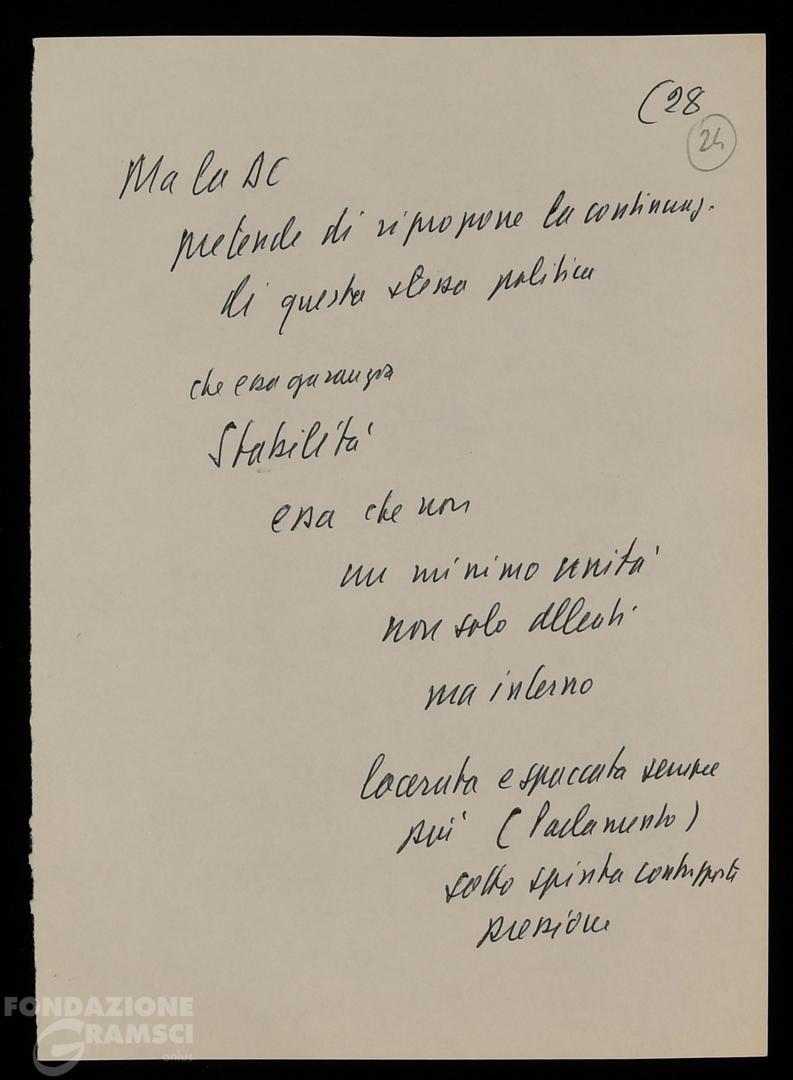 (28
24
Ma la DC
pretende di riproporre la continuaz.
di questa stessa politica
che essa garanzia
Stabilità
essa che non
un minimo unità
non solo alleati
ma interno
lacerata e spaccata sempre
più (Parlamento)
sotto spinta contrapposte
pressioni
FONDAZIONE
GRAMSCI
onlus